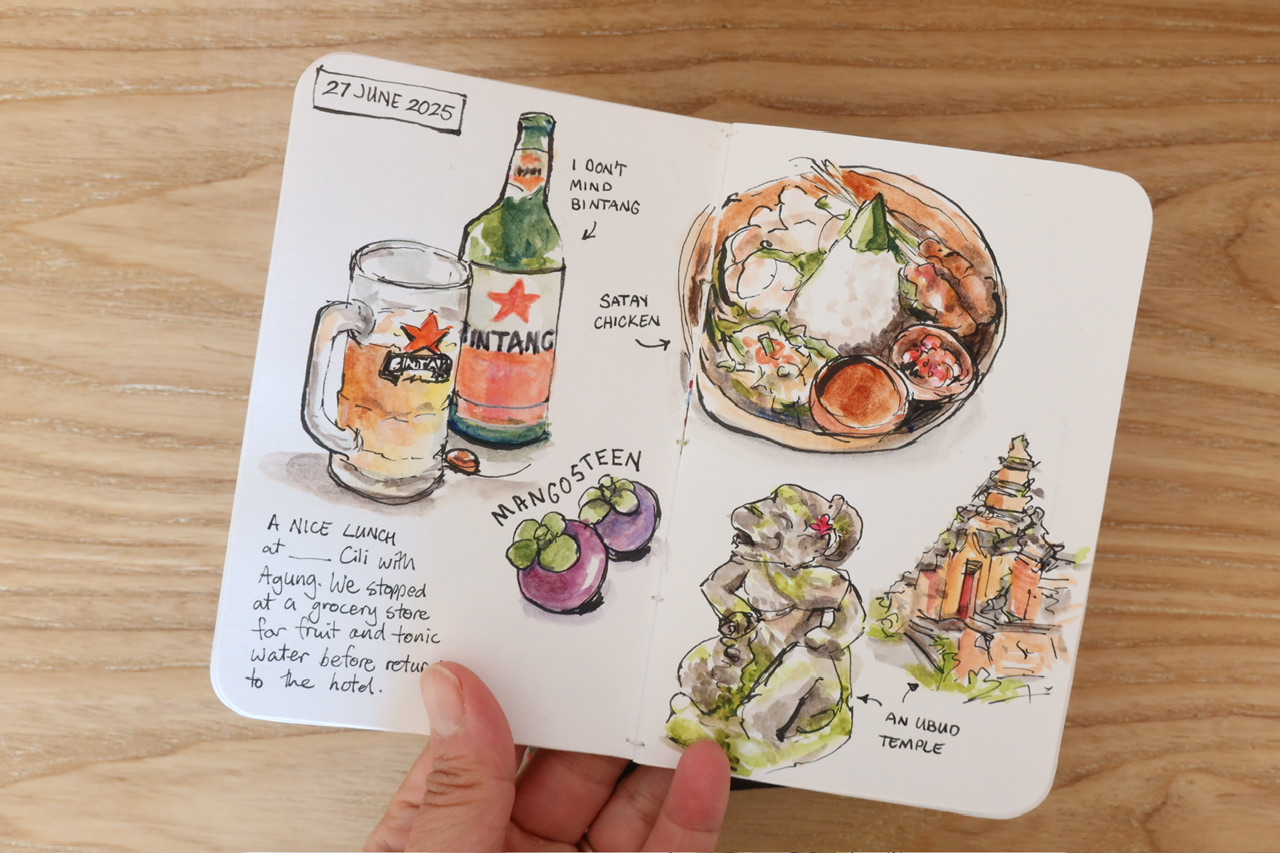 27 JUNE 2025
I DON'T
MIND
BINTANG
INTANG
BINTA
SATAY
CHICKEN
MANGOSTEEN
A NICE LUNCH
at ___ Cili with
Agung. We stopped
at a grocery store
for fruit and tonic
water before retur
to the hotel.
AN UBUD
TEMPLE